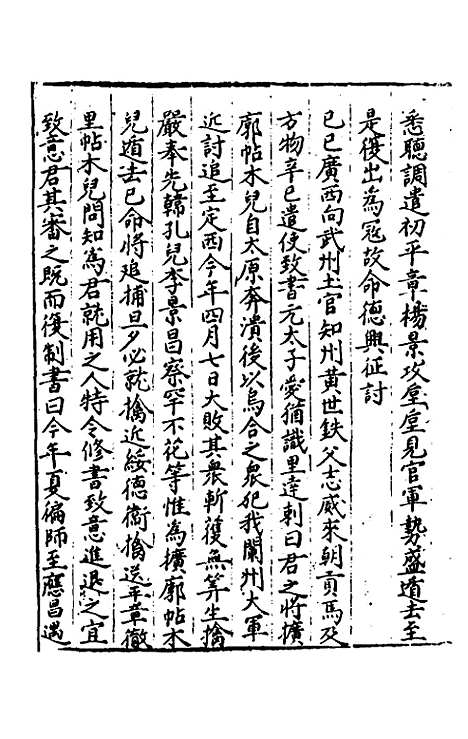 悉聽調遣初平章楊景攻堂堂見官軍勢盛遁去至
是復出為冦故命德興征討
己巳廣西向武州土官知州黃世鉄父志威來朝貢馬及
方物辛巳遣使致書元太子愛猶識里達剌曰君之將擴
廓帖木兒自太原奔潰後以烏合之衆犯我蘭州大軍
近討追至定西今年四月七日大敗其衆斬獲無筭生擒
嚴奉先韓孔兒李景昌察罕不花等惟為擴廓帖木
兒遁去已命將追捕旦夕必就擒近綏德衛擒送平章徹
里帖木兒問知為君就用之人特令修書致意進退之宜
致意君其審之既而復制書曰今年夏偏師至應昌遇